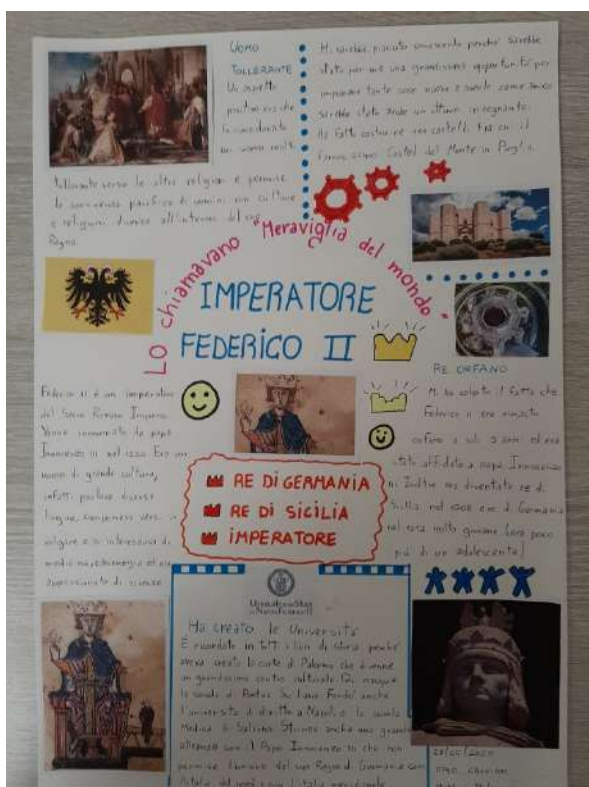 UOMO
TOLLERANTE
Un aspetto
positivo era che
fu considerato
un uomo molto
tollerante verso le altre religioni e permise
la convivenza pacifica di uomini con culture
e religioni diverse all'interno del suo
Regno.
Mi sarebbe piaciuto conoscerlo perché sarebbe
stato per me una grandissima opportunità per
imparare tante cose nuove e averlo come amico
sarebbe stato anche un ottimo insegnante.
Ha fatto costruire vari castelli tra cui il
famosissimo Castel del Monte in Puglia.
Lo chiamavano "Meraviglia del mondo"
IMPERATORE
FEDERICO II
Federico II è un imperatore
del Sacro Romano Impero.
Venne incoronato da papa
Innocenzo III nel 1220. Era un
uomo di grande cultura,
infatti parlava diverse
lingue, componeva versi in
volgare e si interessava di
medicina, astronomia ed era
appassionato di scienze
RE DI GERMANIA
RE DI SICILIA
IMPERATORE
RE ORFANO
Mi ha colpito il fatto che
Federico II era rimasto
orfano a soli 3 anni ed era
stato affidato a papa Innocenzo
III. Inoltre era diventato re di
Sicilia nel 1208 e re di Germania
nel 1212 molto giovane (era poco
più di un adolescente)
Ha creato le Università
È ricordato in tutti i libri di storia perché
aveva creato la corte di Palermo che divenne
un grandissimo centro culturale. Qui nacque
la scuola di Poetica Siciliana. Fondò anche
l'università di diritto a Napoli e la scuola
Medica di Salerno. Strinse anche una grande
alleanza con il Papa Innocenzo III che non
permise l'unione del suo Regno di Germania con
l'Italia del nord e con l'Italia meridionale